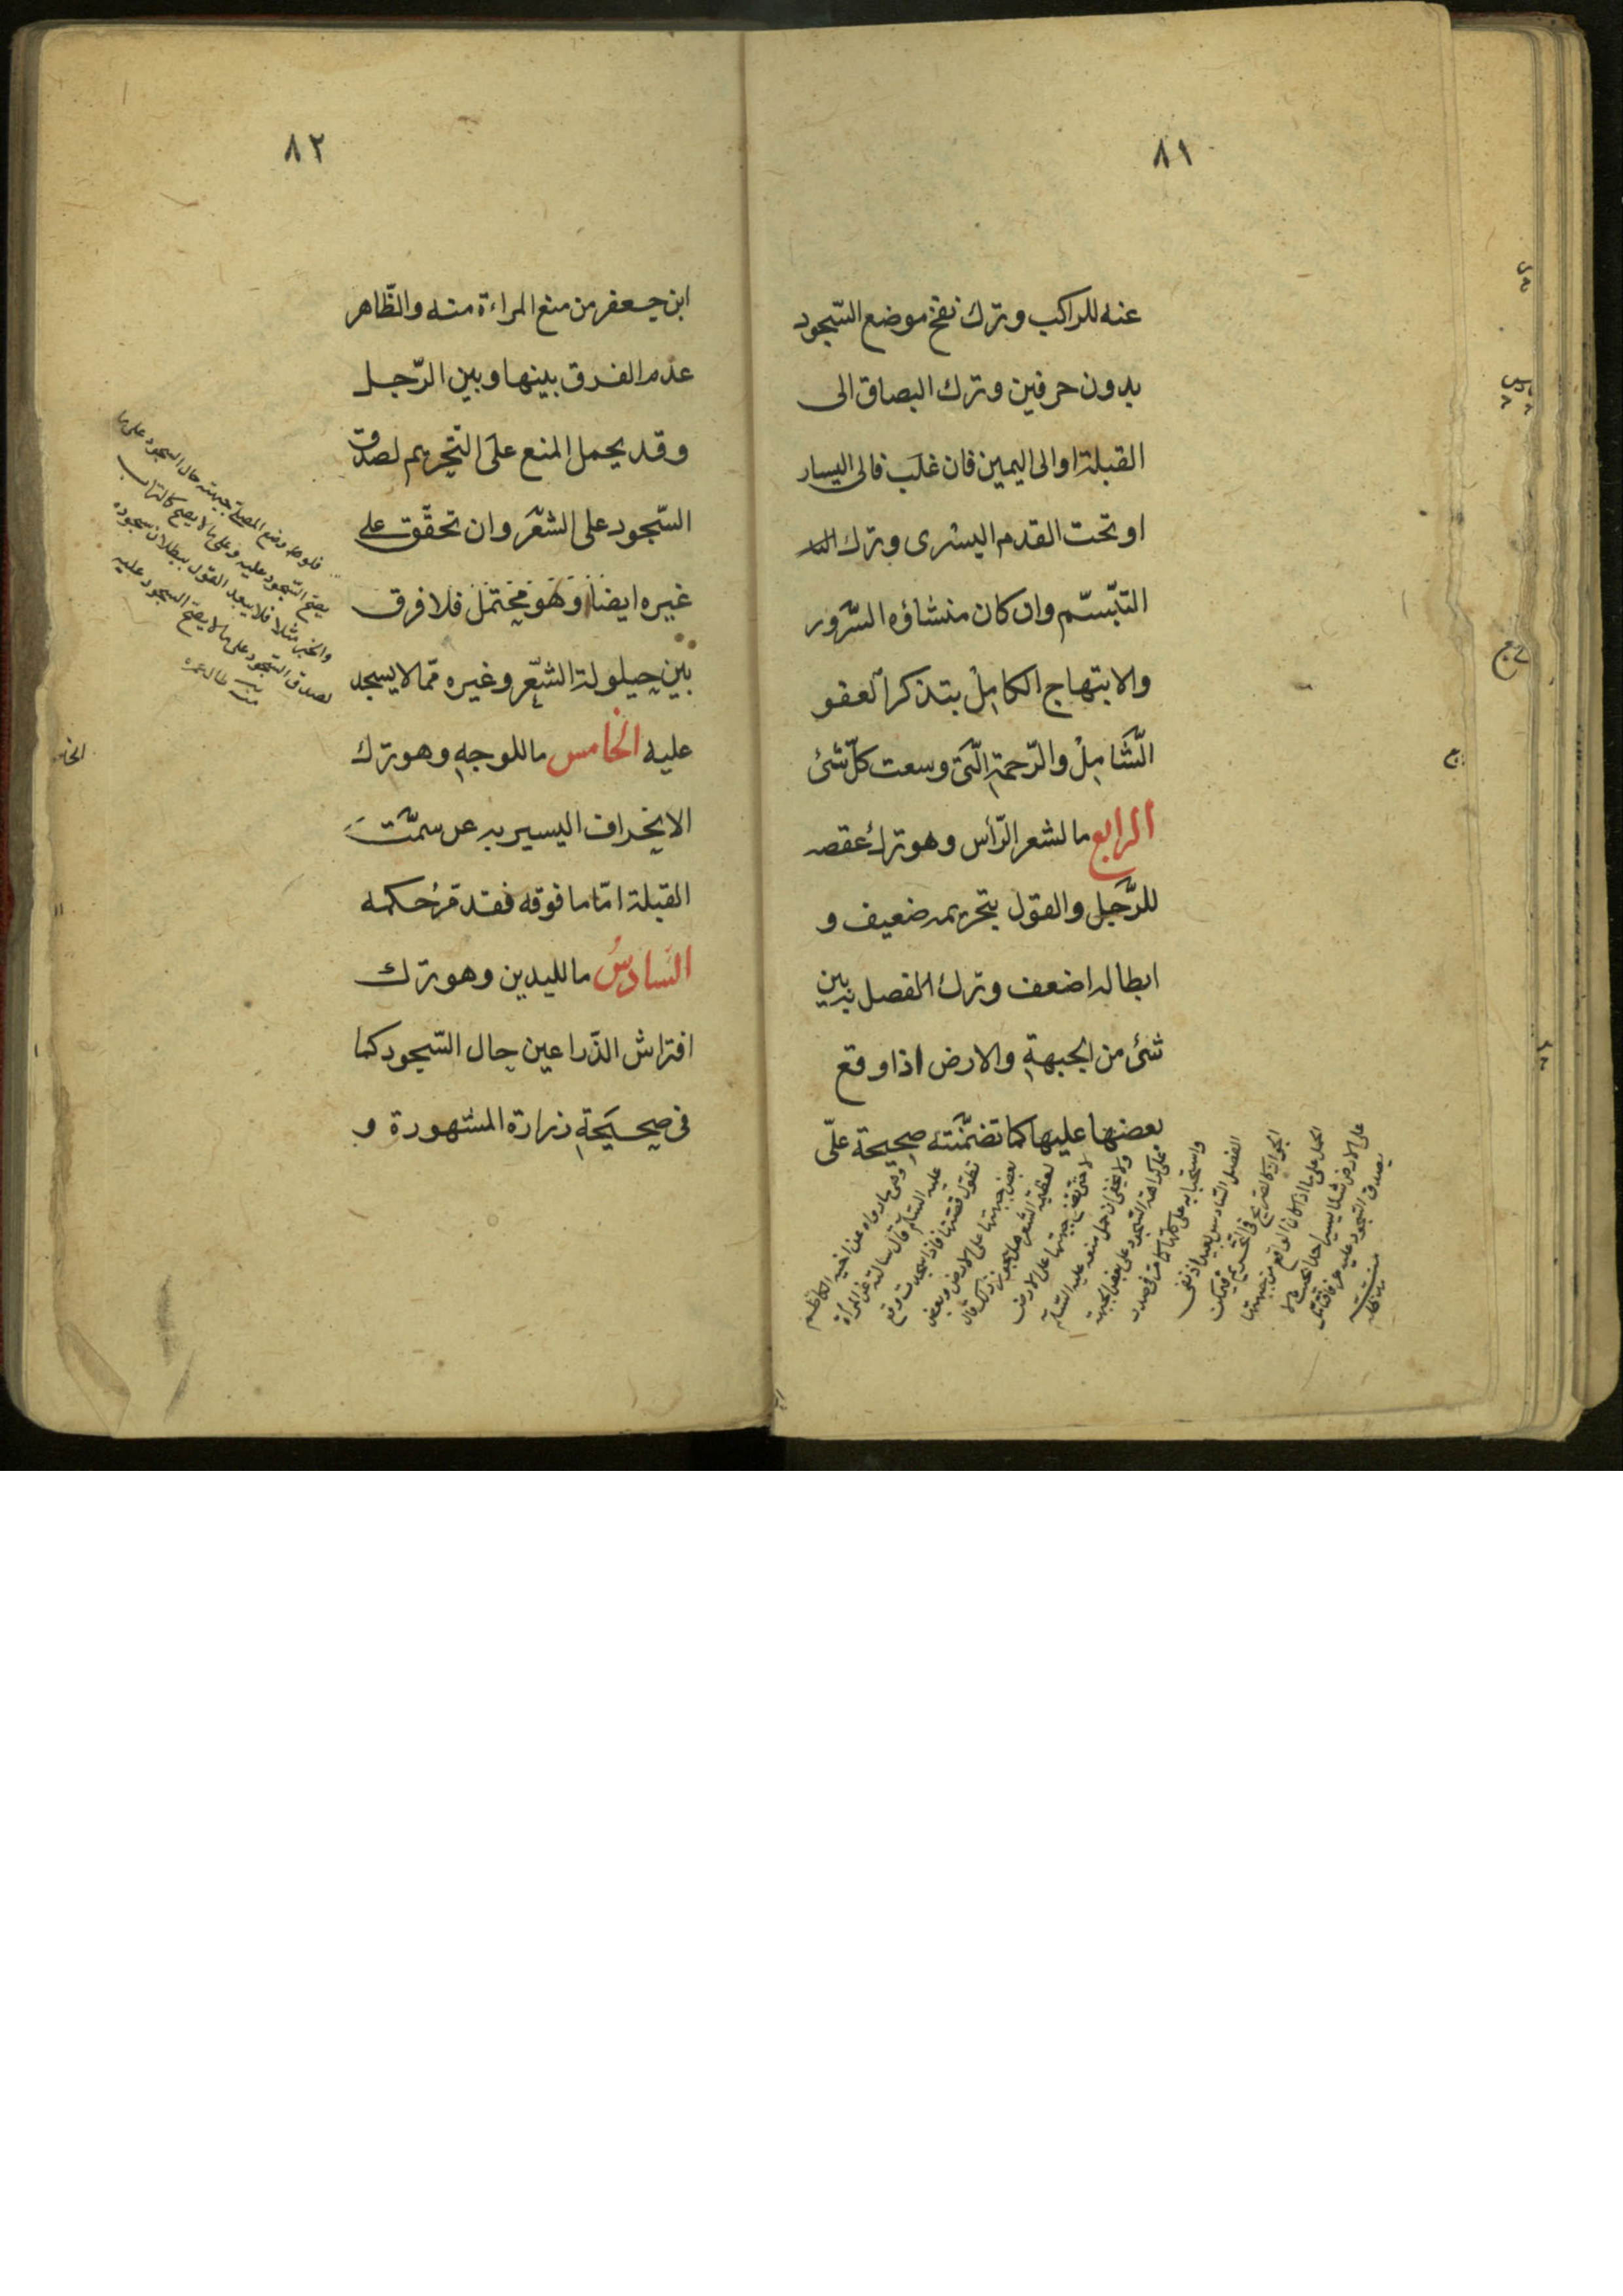 ٨١
عنه للراكب وترك نفخ موضع السّجود
بدون حرفين وترك البصاق الى
القبلة او الى اليمين فان غلب فالى اليسار
او تحت القدم اليسرى وترك
التبّسّم وان كان منشاؤه السّرور
والابتهاج الكامل بتذكر العفو
الشّامل والرّحمة الّتى وسعت كلّ شئ
الرابع ما لشعر الرّأس وهو ترك عقصه
للرّجل والقول بتحريمه ضعيف و
ابطاله اضعف وترك الفصل بين
شئ من الجبهة والارض اذا وقع
بعضها عليها كما تضمّنته صحيحة علىّ
وهى ما رواه عن اخيه الكاظم
عليه السّلام قال سالته عن المرأة
تطول قصّتها فاذا سجدت وقع
بعض جبهتها على الارض وبعض
يغطّيه الشعر هل يجوز ذلك قال
لا حتّى تضع جبهتها على الارض
ولا يخفى ان حمل منعه عليه السّلام
على كراهة السّجود على بعض الجبهة
واستحبابه على كلّها كما مرّ فى صدر
الفصل السّادس بعيد
على الارض شيئا يسيرا جدّا بحيث لا
يصدق السّجود عليه عرفا
٨٢
ابن جعفر من منع المراءة منه والظّاهر
عدم الفرق بينها وبين الرّجل
وقد يحمل المنع على التّحريم لصدق
السّجود على الشعر وان تحقّق على
غيره ايضا وهو محتمل فلا فرق
بين حيلولة الشعر وغيره ممّا لا يسجد
عليه الخامس ما للوجه وهو ترك
الانحراف اليسير به عن سمت
القبلة امّا ما فوقه فقد مرّ حكمه
السّادس ما لليدين وهو ترك
افتراش الذّراعين حال السّجود كما
فى صحيحة زرارة المشهورة و
فلو وضع المصلّى جبهته حال السجود على ما
يصحّ السّجود عليه وعلى ما لا يصح كالتراب
والخبز مثلا فلا يبعد القول ببطلان سجوده
لصدق السّجود على ما لا يصحّ السجود عليه
منه طال عمره